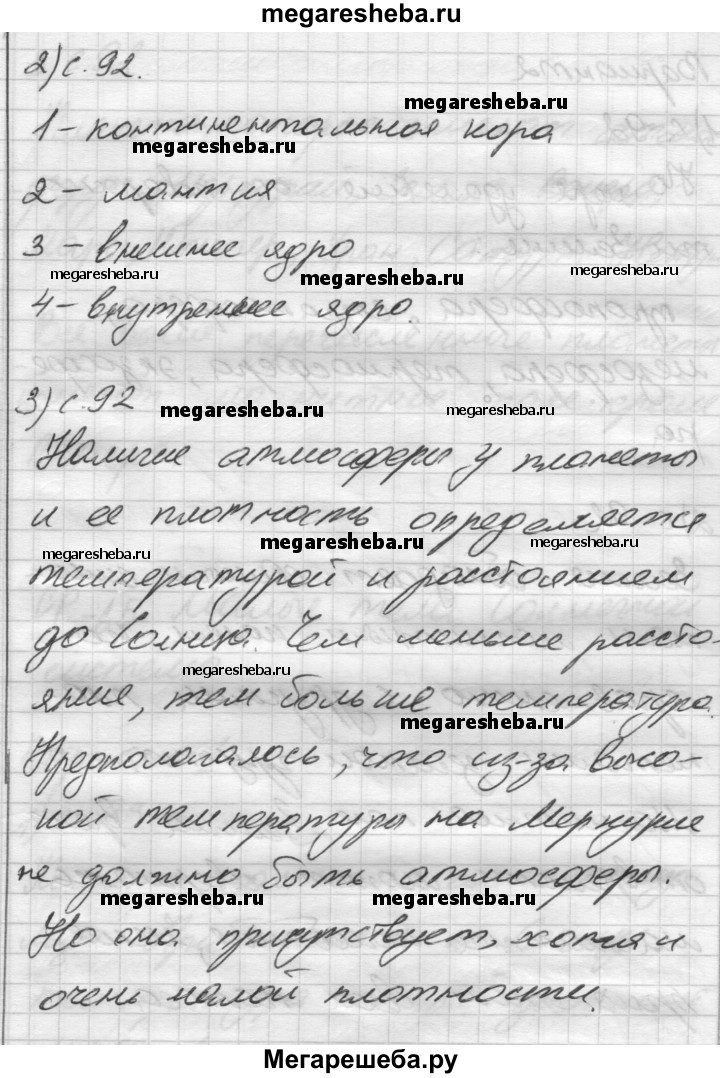 megaresheba.ru
2) с. 92.
megaresheba.ru
1 - континентальная кора
megaresheba.ru
2 - мантия
3 - внешнее ядро
megaresheba.ru megaresheba.ru megaresheba.ru
4 - внутреннее ядро.
3) с. 92
megaresheba.ru megaresheba.ru
Наличие атмосферы у планеты
и ее плотность определяется
megaresheba.ru megaresheba.ru megaresheba.ru
температурой и расстоянием
до Солнца. Чем меньше рассто-
megaresheba.ru megaresheba.ru
яние, тем больше температура.
megaresheba.ru
Предполагалось, что из-за высо-
кой температуры на Меркурие
не должно быть атмосферы.
megaresheba.ru megaresheba.ru
Но она присутствует, хотя и
очень малой плотности.
Мегарешеба.ру